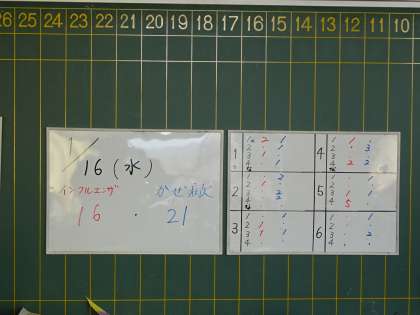 26 25 24 23 22 21 20 19 18 17 16 15 14 13 12 11 10
1/16(水)
インフルエンザ かぜ症状
16 ・ 21
1 1 2 1
2 ・ ・
3 1 ・
4 ・ 1
2 1 ・ 2
2 1 ・
3 ・ 2
4 ・ ・
3 1 ・ 1
2 1 ・
3 1 1
4 ・ ・
4 1 1 ・
2 ・ 3
3 ・ ・
4 2 2
5 1 ・ 1
2 ・ ・
3 1 1
4 5 ・
6 1 ・ 1
2 ・ ・
3 ・ 2
4 ・ ・